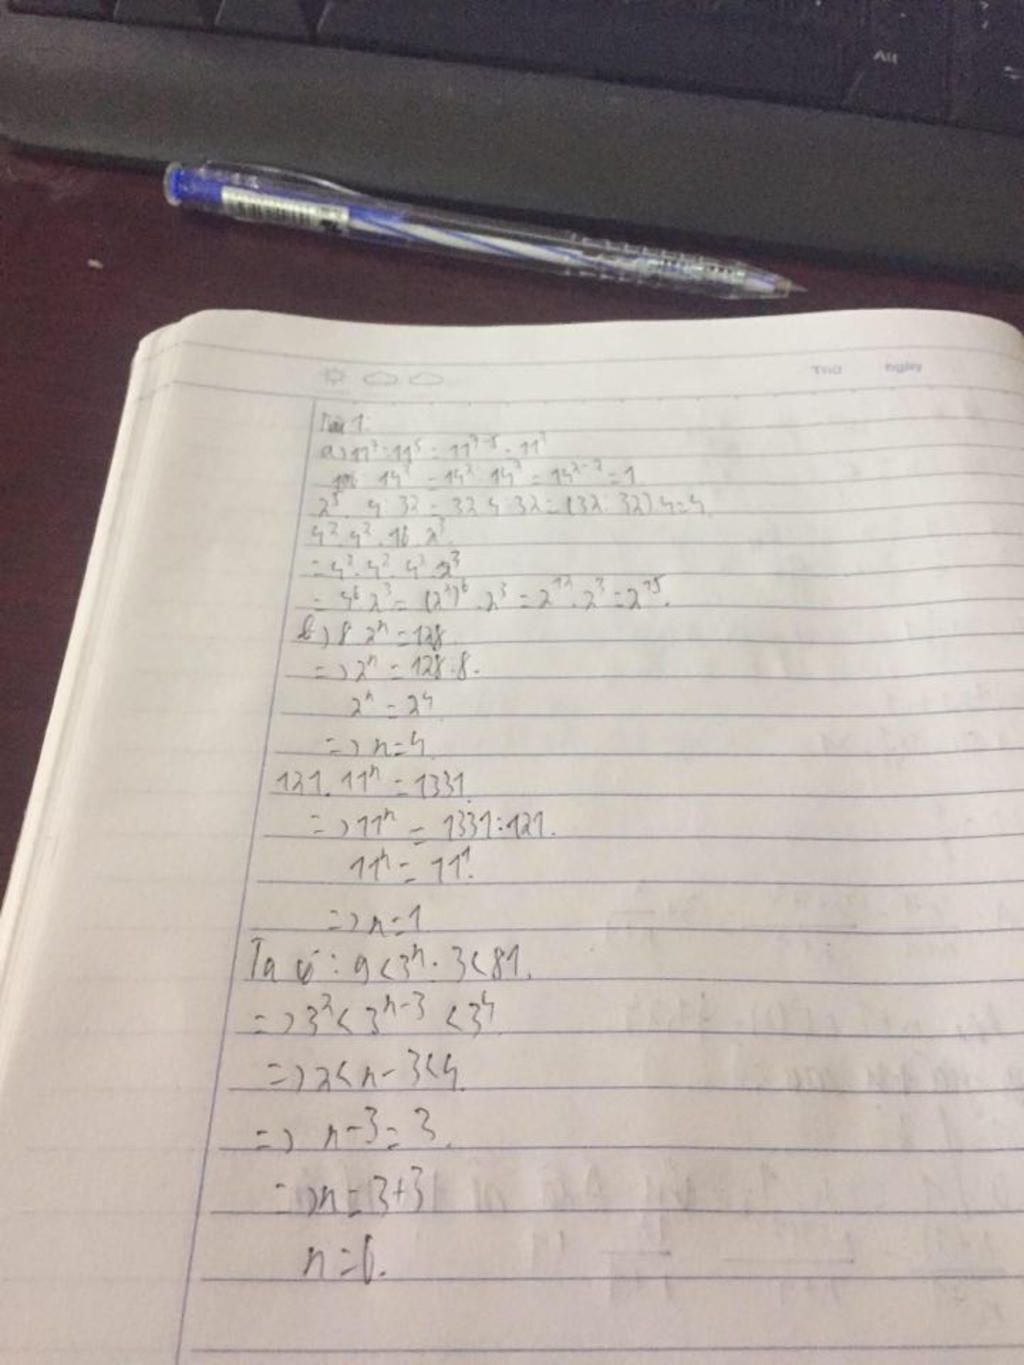 All
Thứ ngày
Bài 1:
a) 11⁷ : 11⁵ = 11⁷⁻⁵ = 11²
196 : 14² = 14² : 14² = 14²⁻² = 1
2⁵ . 4 : 32 = 32 . 4 : 32 = (32 : 32) . 4 = 4
4² . 4² . 16 . 2³
= 4² . 4² . 4² . 2³
= 4⁶ . 2³ = (2²)⁶ . 2³ = 2¹² . 2³ = 2¹⁵.
b) 8 . 2ⁿ = 128
=> 2ⁿ = 128 : 8.
2ⁿ = 2⁴
=> n = 4
121 . 11ⁿ = 1331.
=> 11ⁿ = 1331 : 121.
11ⁿ = 11¹.
=> n = 1
Ta có : 9 < 3ⁿ : 3 < 81.
=> 3² < 3ⁿ⁻³ < 3⁴
=> 2 < n - 3 < 4.
=> n - 3 = 3.
=> n = 3 + 3
n = 6.